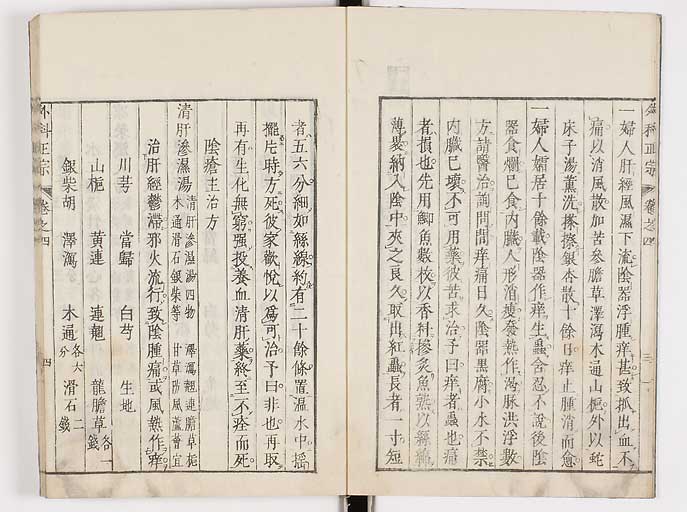 一婦人肝經風濕下流陰器浮腫痒甚致抓出血不
痛以消風散加苦參膽草澤瀉木通山梔外以蛇
床子湯薰洗搽擦銀杏散十餘日痒止腫消而愈
一婦人孀居十餘載陰器作痒生蟲含忍不說後陰
器食爛已食內臟人形消瘦發熱作渴脉洪浮數
方請醫治詢問間痒痛日久陰器黑腐小水不禁
內臟已壞不可用藥彼苦求治予曰痒者蟲也痛
者損也先用鯽魚數枚以香料摻炙魚熟以絲綿
薄裹納入陰中夾之良久取出紅蟲長者一寸短
外科正宗
卷之四
三
者五六分細如絲線約有二十餘條置溫水中搖
擺片時方死彼家歡悅以為可治予曰非也再取
再有生化無窮强投養血清肝藥終至不痊而死
陰瘡主治方
清肝滲濕湯 清肝滲濕湯四物 澤瀉翹連膽草梔
木通滑石銀柴等 甘草防風蘆薈宜
治肝經鬱滯邪火流行致陰腫痛或風熱作痒
川芎 當歸 白芍 生地
山梔 黃連 連翹 龍膽草各一錢
銀柴胡 澤瀉 木通各六分 滑石二錢
外科正宗
卷之四
四